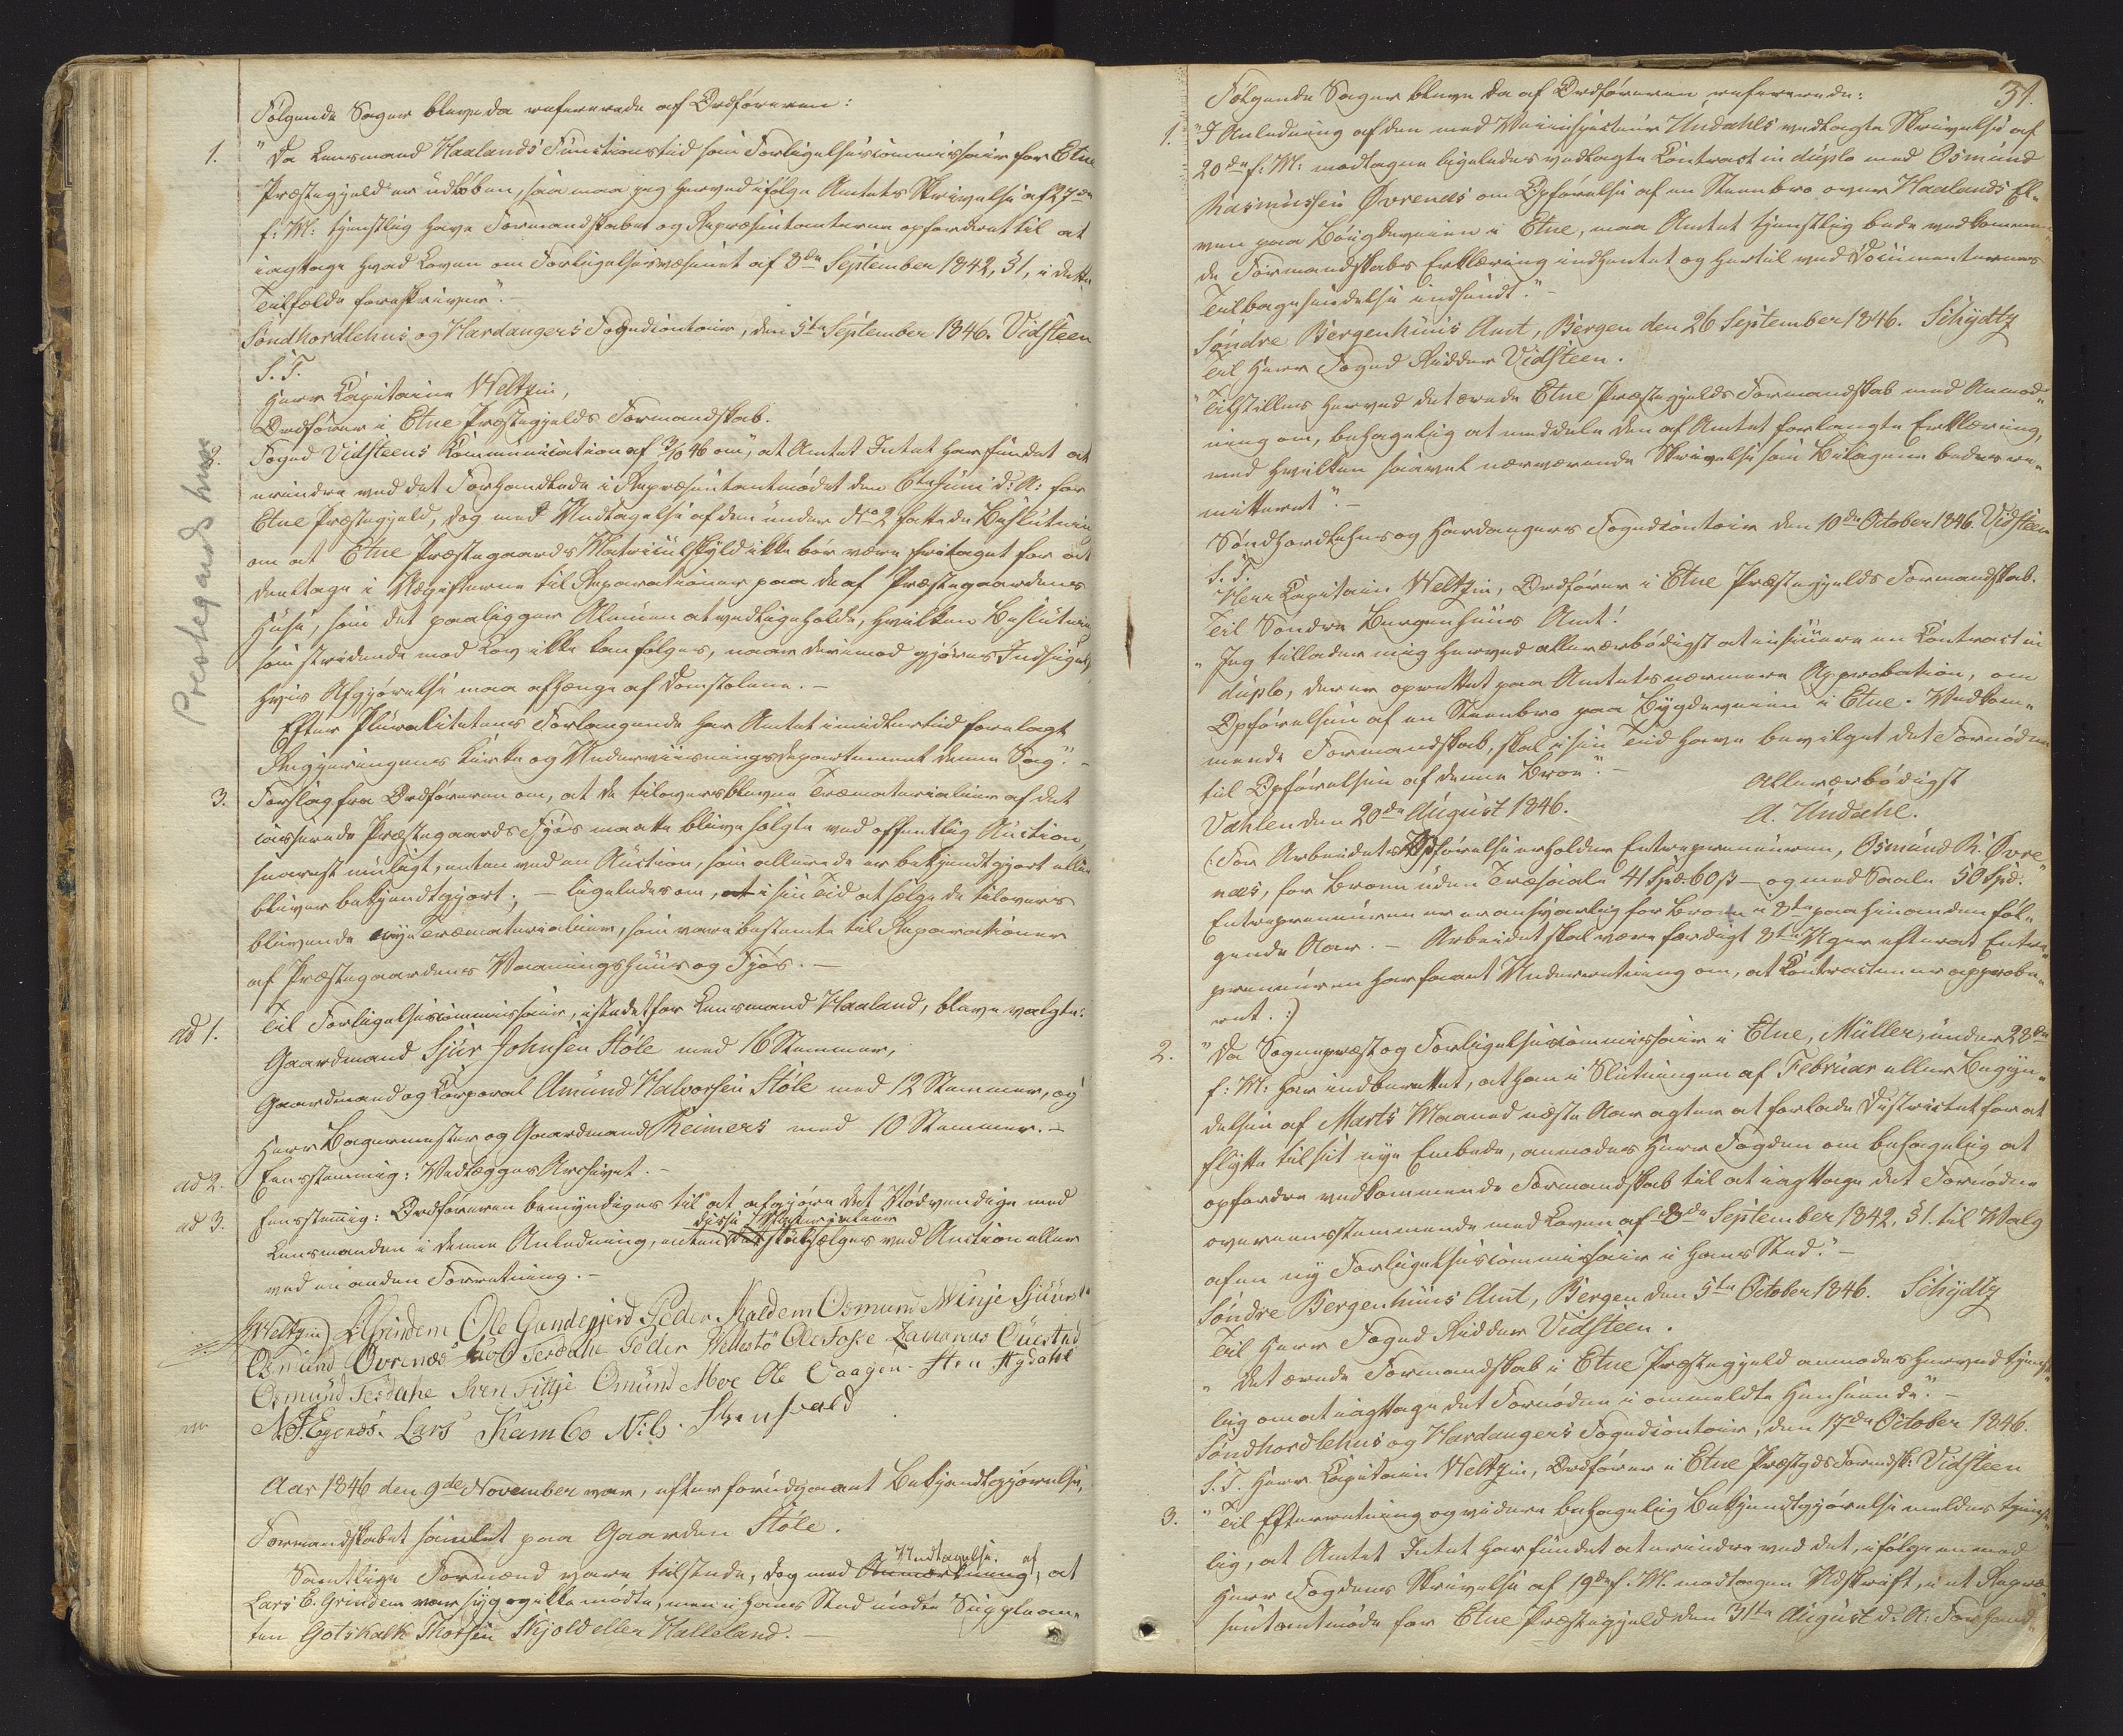 Følgende Sager bleve da refererede af Ordføreren:
1. "Da Lensmand Haalands Functionstid som Forligelsescommissair for Etne
Præstegjeld er udløben, saa maa jeg herved ifølge Amtets Skrivelse af 27de
f: M: tjenstlig have Formandskabet og Repræsentanterne opfordret til at
iagttage hvad Loven om Forligelsesvæsenet af 8de September 1842, §1, i dette
Tilfælde foreskriver".-
Søndhordlehns og Hardangers Fogdicontoir, den 5te September 1846. Vidsteen
S. T.
Herr Capitaine Weltzin,
Ordfører i Etne Præstegjelds Formandskab.
2. Foged Vidsteens Communication af 3/10 46 om, at Amtet Intet har fundet at
erindre ved det Forhandlede i Repræsentantmødet den 6te Juni d: A: for
Etne Præstegjeld, dog med Undtagelse af den under No 2 fattede Beslutning
om at Etne Præstegaards Matriculskyld ikke bør være fritaget for at
deeltage i Udgifterne til Reparationer paa de af Præstegaardens
Huse, som det paaligger Almuen at vedligeholde, hvilken Beslutning
som stridende mod Lov ikke kan følges, naar derimod gjøres Indsigelse,
hvis Afgjørelse maa afhænge af Domstolene.-
Efter Pluralitetens Forlangende har Amtet imidlertid forelagt
Regjeringens Kirke og Underviisningsdepartement denne Sag".-
Prestegards huse
3. Forslag fra Ordføreren om, at de tiloversblevne Træmaterialier af det
casserede Præstegaards Fjøs maatte blive solgte ved offentlig Auction,
snarest muligt, enten ved en Auction, som allerede er bekjendtgjort eller
bliver bekjendtgjort; - ligeledes om, i sin Tid at sælge de tilovers
blivende nye Træmaterialier, som vare bestemte til Reparationer
af Præstegaardens Vaaningshuus og Fjøs.-
ad 1. Til Forligelsescommissair, istedetfor Lensmand Haaland, bleve valgte:
Gaardmand Sjur Johnsen Støle med 16 Stemmer,
Gaardmand og Corporal Amund Halvorsen Støle med 12 Stemmer, og
Herr Bagermester og Gaardmand Reimers med 10 Stemmer.-
ad 2. Eensstemmig: Vedlægges Archivet.-
ad 3. Eensstemig: Ordføreren bemyndiges til at afgjøre det Nødvendige med
Lensmanden i denne Anledning, enten disse Materialier skal sælges ved Auction eller
ved en anden Forretning.-
Weltzin LGrindem Ole Gundegjerd Peder Skaldem Osmund Minje
Osmund Øvrenæs Terdahe Peder Vellestø Ole Tofse Zacarias Qüestad
Osmund Tesdahe Sven Fittje Omünd Moe Ole Vaagen Sten Fygdahl
N.J.Egenæs. Lars Kambo Nils Stensvald
Aar 1846 den 9de November var, efter forudgaaet Bekjendtgjørelse,
Formandskabet samlet paa Gaarden Støle.
Samtlige Formænd vare tilstede, dog med Undtagelse af, at
Lars E. Grindem var syg og ikke mødte, men i hans Sted mødte Supplean-
ten Gotskalk Thorsen Skjold eller Halleland.-
31.
Følgende Sager bleve da af Ordføreren refererede:
1. "I Anledning af den med Veiinspecteur Undahls vedlagte Skrivelse af
20de f: M: modtagne ligeledes vedlagte Contract in duplo med Osmund
Rasmussen Øvrenæs om Opførelse af en Steenbro over Haalands El-
ven paa Bøigdeveien i Etne, maa Amtet tjenstlig bede vedkommen-
de Formandskabs Erklæring indhentet og hertil ved Documenternes
Tilbagesendelse indsendt."-
Søndre Bergenhuus Amt, Bergen den 26 September 1846. Schydtz
Til Herr Foged Ridder Vidsteen.
"Tilstilles herved det ærede Etne Præstegjelds Formandskab med Anmod-
ning om, behagelig at meddele den af Amtet forlangte Erklæring,
med hvilken saavel nærværende Skrivelse som Bilagene bedes re-
mitteret".-
Søndhordlehns og Hardangers Fogedcontoir den 10de October 1846. Vidsteen
S. T.
Herr Capitain Weltzin, Ordfører i Etne Præstegjelds Formandskab.
Til Søndre Bergenhuus Amt!
"Jeg tillader mig herved allerærbødigst at insinuere en Contract in
duplo, der er oprettet paa Amtets nærmere Approbation, om
Opførelsen af en Steenbro paa Bygdeveien i Etne. Vedkom-
mende Formandskab, skal i sin Tid have bevilget det Fornødne
til Opførelsen af denne Broe".-
Allerærbødigst
Vahlen den 20de August 1846. A. Undahl.
(: For Arbeidets Opførelse erholder Entrepreneuren, Osmund R. Øvre-
næs, for Broen uden Træsaale 41 Spd. 60 ß - og med Saale 50 Spd.
Entrepreneuren er ansvarlig for Broen i 8te paa hinanden føl-
gende Aar.- Arbeidet skal være færdigt 8te Uger efterat Entre-
preneuren har faaet Underretning om, at Contracten er approbe-
ret. :)
2. "Da Sognepræst og Forligelsescommissair i Etne, Müller, under 28de
f: M: har indberettet, at han i Slutningen af Februar eller Begyn-
delsen af Marts Maaned næste Aar agter at forlade Districtet for at
flytte til sit nye Embede, anmodes Herr Fogden om behagelig at
opfordre vedkommende Formandskab til at iagttage det Fornødne
overeensstemmende med Loven af 8de September 1842, §1. til Valg
af en ny Forligelsescommissair i hans Sted."-
Søndre Bergenhuus Amt, Bergen den 5te October 1846. Schydtz
Til Herr Foged Ridder Vidsteen.
"Det ærede Formandskab i Etne Præstegjeld anmodes herved tjenst-
lig om at iagttage det Fornødne i ommeldte Henseende."-
Søndhordlehns og Hardangers Fogedcontoir, den 17de October 1846.
S. T. Herr Capitain Weltzin, Ordfører i Etne Præstgds Formdsk: Vidsteen
3. "Til Efterretning og videre behagelig Bekjendtgjørelse meldes tjenst-
lig, at Amtet Intet har fundet at erindre ved det, ifølge en med
Herr Fogdens Skrivelse af 19de f. M. modtagen Udskrift, i et Repræ-
sentantmøde for Etne Præstegjeld den 31te August d. A: Forhand-